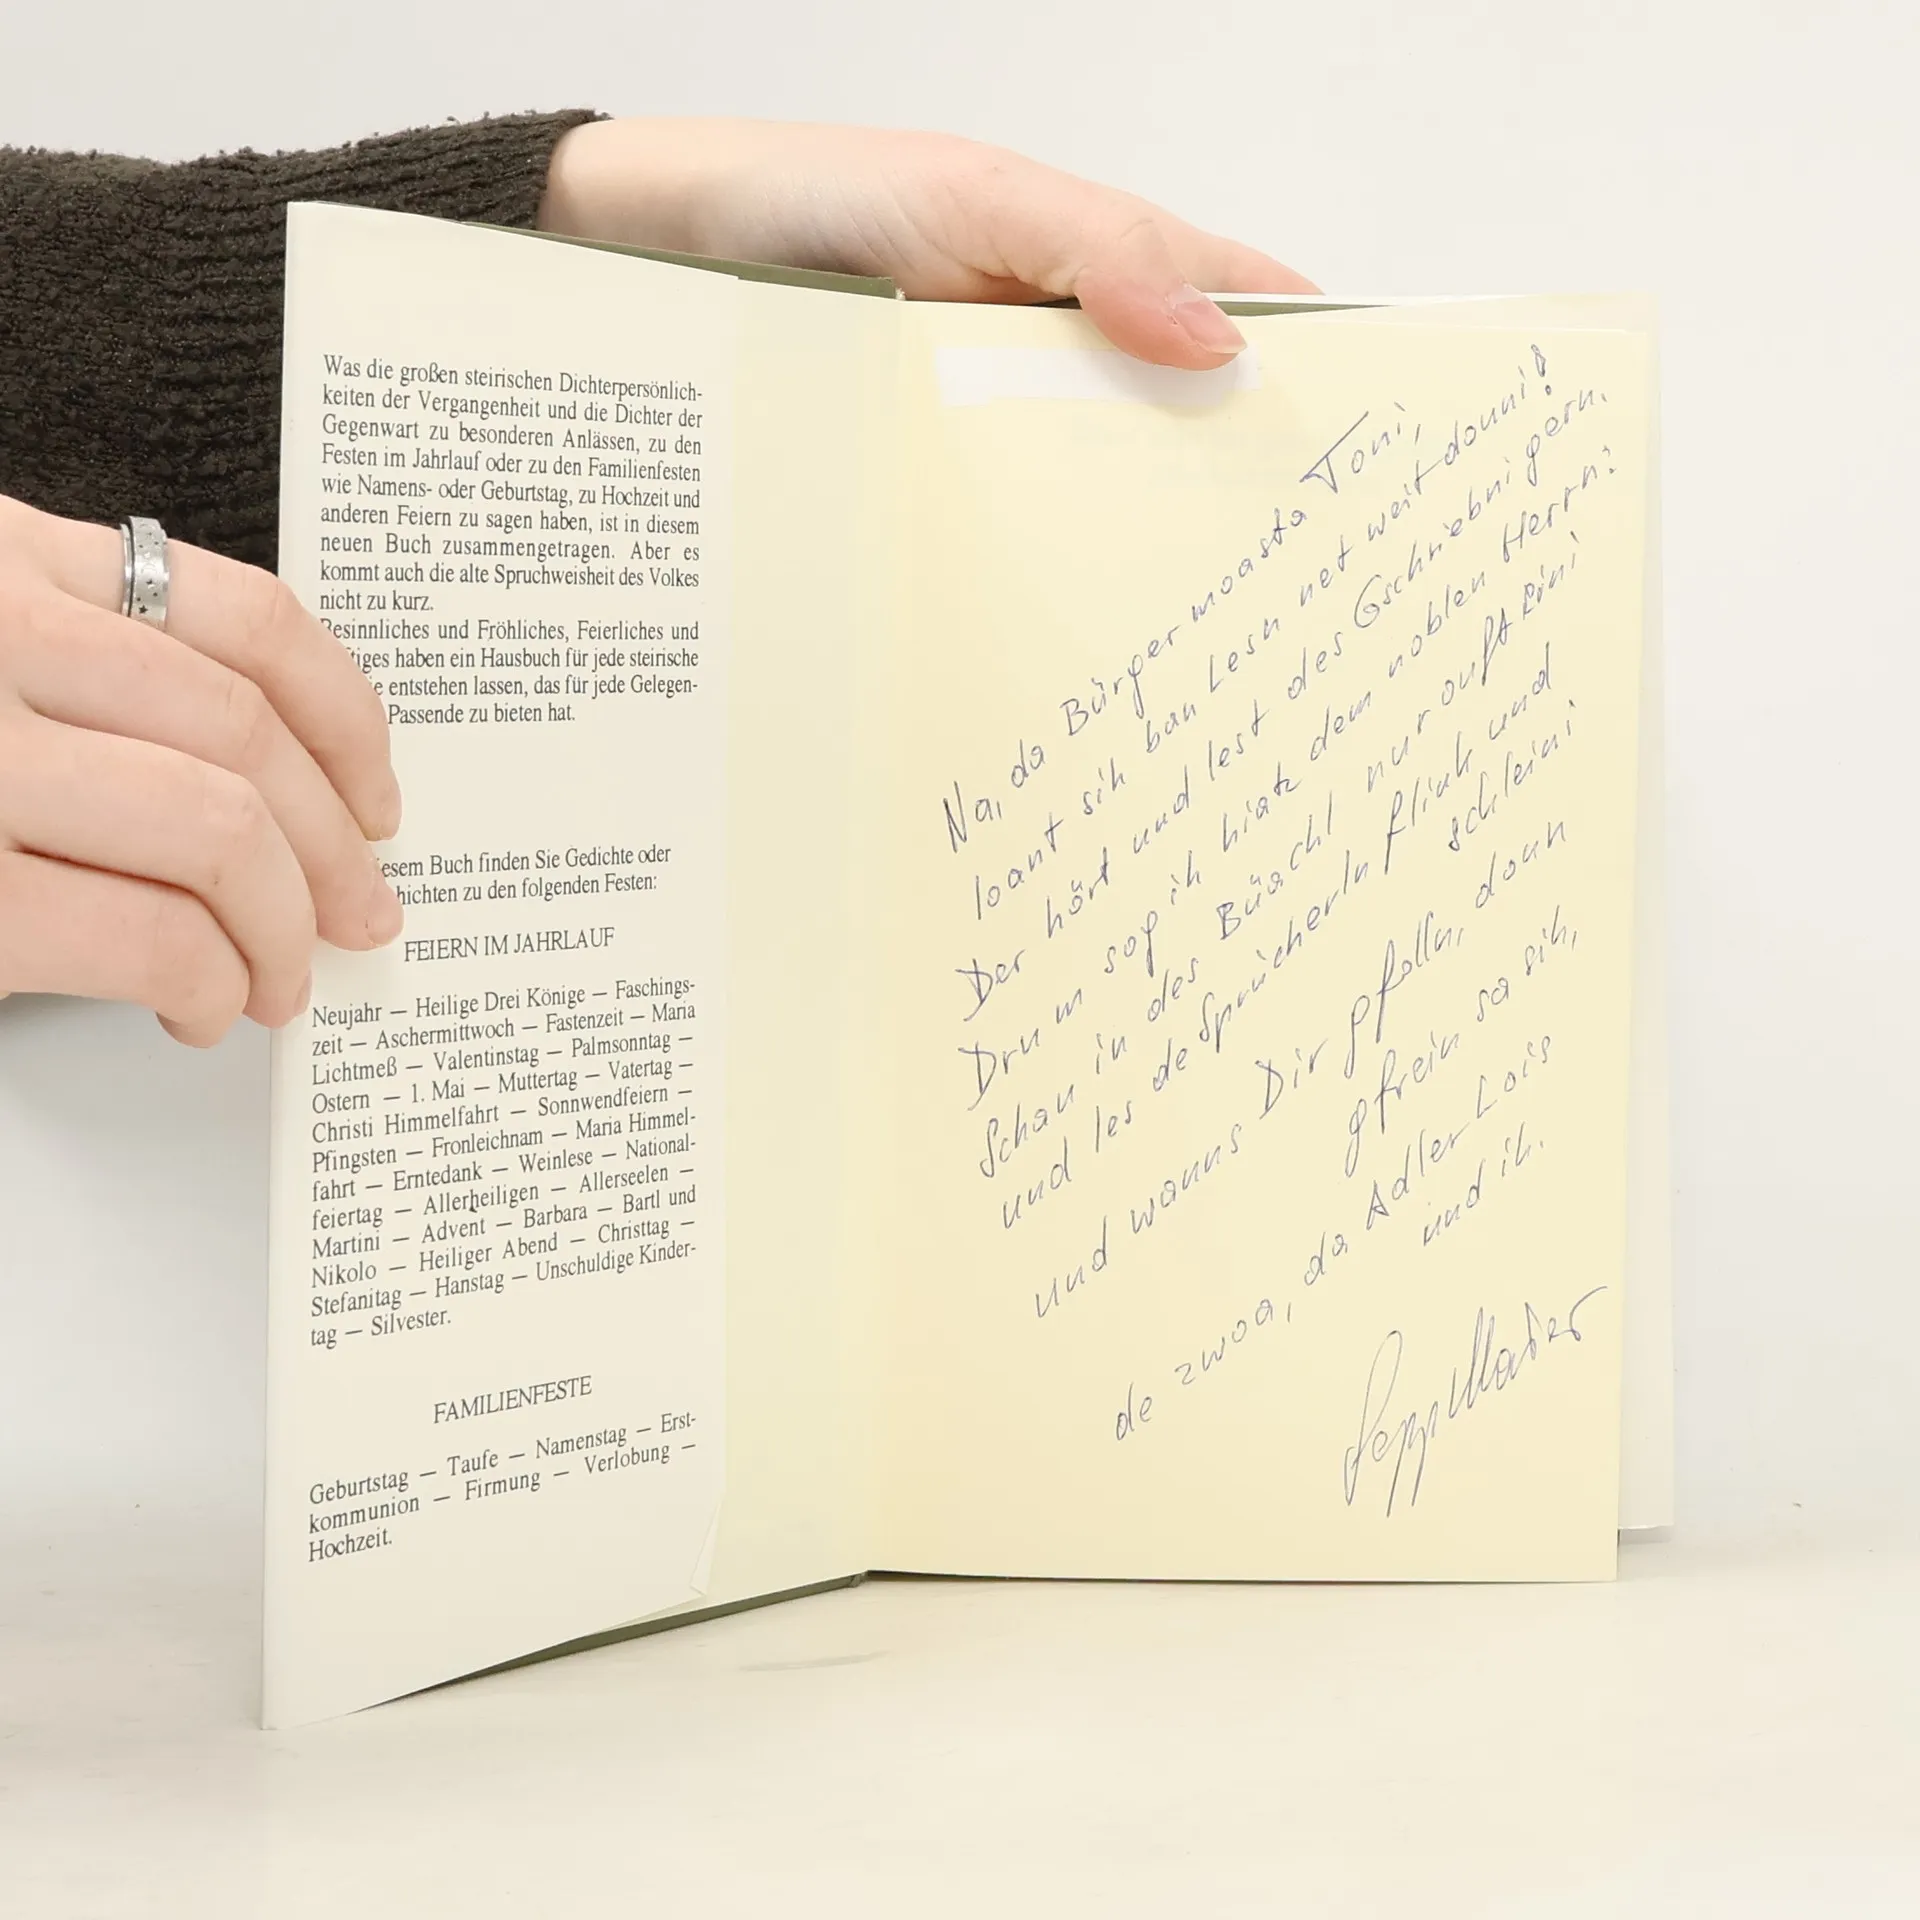 Was die großen steirischen Dichterpersönlich-
keiten der Vergangenheit und die Dichter der
Gegenwart zu besonderen Anlässen, zu den
Festen im Jahrlauf oder zu den Familienfesten
wie Namens- oder Geburtstag, zu Hochzeit und
anderen Feiern zu sagen haben, ist in diesem
neuen Buch zusammengetragen. Aber es
kommt auch die alte Spruchweisheit des Volkes
nicht zu kurz.
Besinnliches und Fröhliches, Feierliches und
tiges haben ein Hausbuch für jede steirische
ie entstehen lassen, das für jede Gelegen-
Passende zu bieten hat.
esem Buch finden Sie Gedichte oder
hichten zu den folgenden Festen:
FEIERN IM JAHRLAUF
Neujahr — Heilige Drei Könige — Faschings-
zeit — Aschermittwoch — Fastenzeit — Maria
Lichtmeß — Valentinstag — Palmsonntag —
Ostern — 1. Mai — Muttertag — Vatertag —
Christi Himmelfahrt — Sonnwendfeiern —
Pfingsten — Fronleichnam — Maria Himmel-
fahrt — Erntedank — Weinlese — National-
feiertag — Allerheiligen — Allerseelen —
Martini — Advent — Barbara — Bartl und
Nikolo — Heiliger Abend — Christtag —
Stefanitag — Hanstag — Unschuldige Kinder-
tag — Silvester.
FAMILIENFESTE
Geburtstag — Taufe — Namenstag — Erst-
kommunion — Firmung — Verlobung —
Hochzeit.
Na, da Bürgermoasta Toni,
loant sih ban Lesn net weit donni!
Der hört und lest des Gschriebni gern.
Drum sog ih hiatz dem noblen Herrn:
Schau in des Büachl nur ouft eini
und les de Sprücherln flink und
schleini
und wanns Dir gfolln, dann
gfrein sa sih,
de zwoa, da Adler Lois
und ih.
Sepp Maier